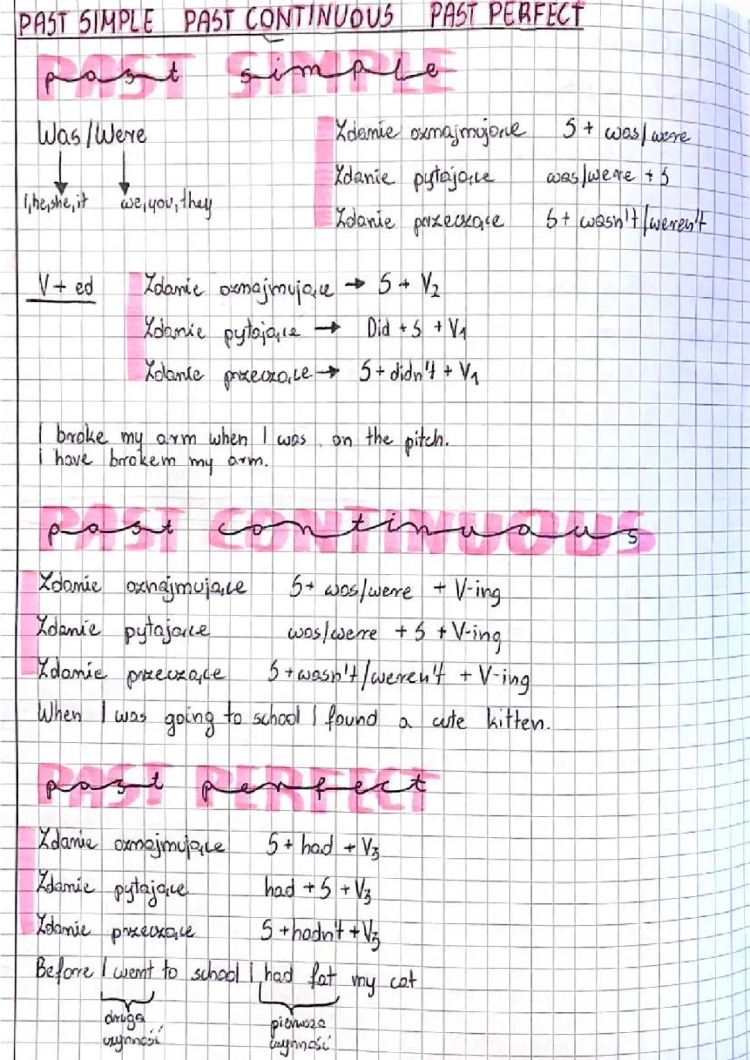 PAST SIMPLE PAST CONTINUOUS PAST PERFECT
PAST SIMPLE
past simple
Was/Were
I,he,she,it we,you,they
Zdanie oznajmujące S + was/were
Zdanie pytające was/were + S
Zdanie przeczące S + wasn't/weren't
V + ed
Zdanie oznajmujące → S + V2
Zdanie pytające → Did + S + V1
Zdanie przeczące → S + didn't + V1
I broke my arm when I was on the pitch.
I have broken my arm.
PAST CONTINUOUS
past continuous
Zdanie oznajmujące S + was/were + V-ing
Zdanie pytające was/were + S + V-ing
Zdanie przeczące S + wasn't/weren't + V-ing
When I was going to school I found a cute kitten.
PAST PERFECT
past perfect
Zdanie oznajmujące S + had + V3
Zdanie pytające had + S + V3
Zdanie przeczące S + hadn't + V3
Before I went to school I had fat my cat
druga czynność
pierwsza czynność